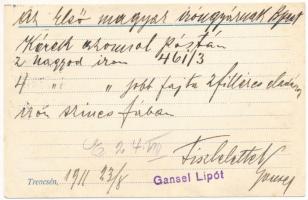 Az Első magyar irongyárnak Bpest
Kérek azonnal póstán
2 nagyod iron 461/3
4 " " jobb fajta 2 filléres
irón szines fában
Tisztelettel
Trencsén, 1911 23/8
Gansel Lipót
Gansel